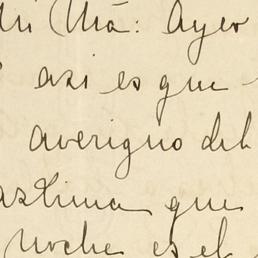 Má: Ayer
asi es que
averiguo del
astima que
noche es el